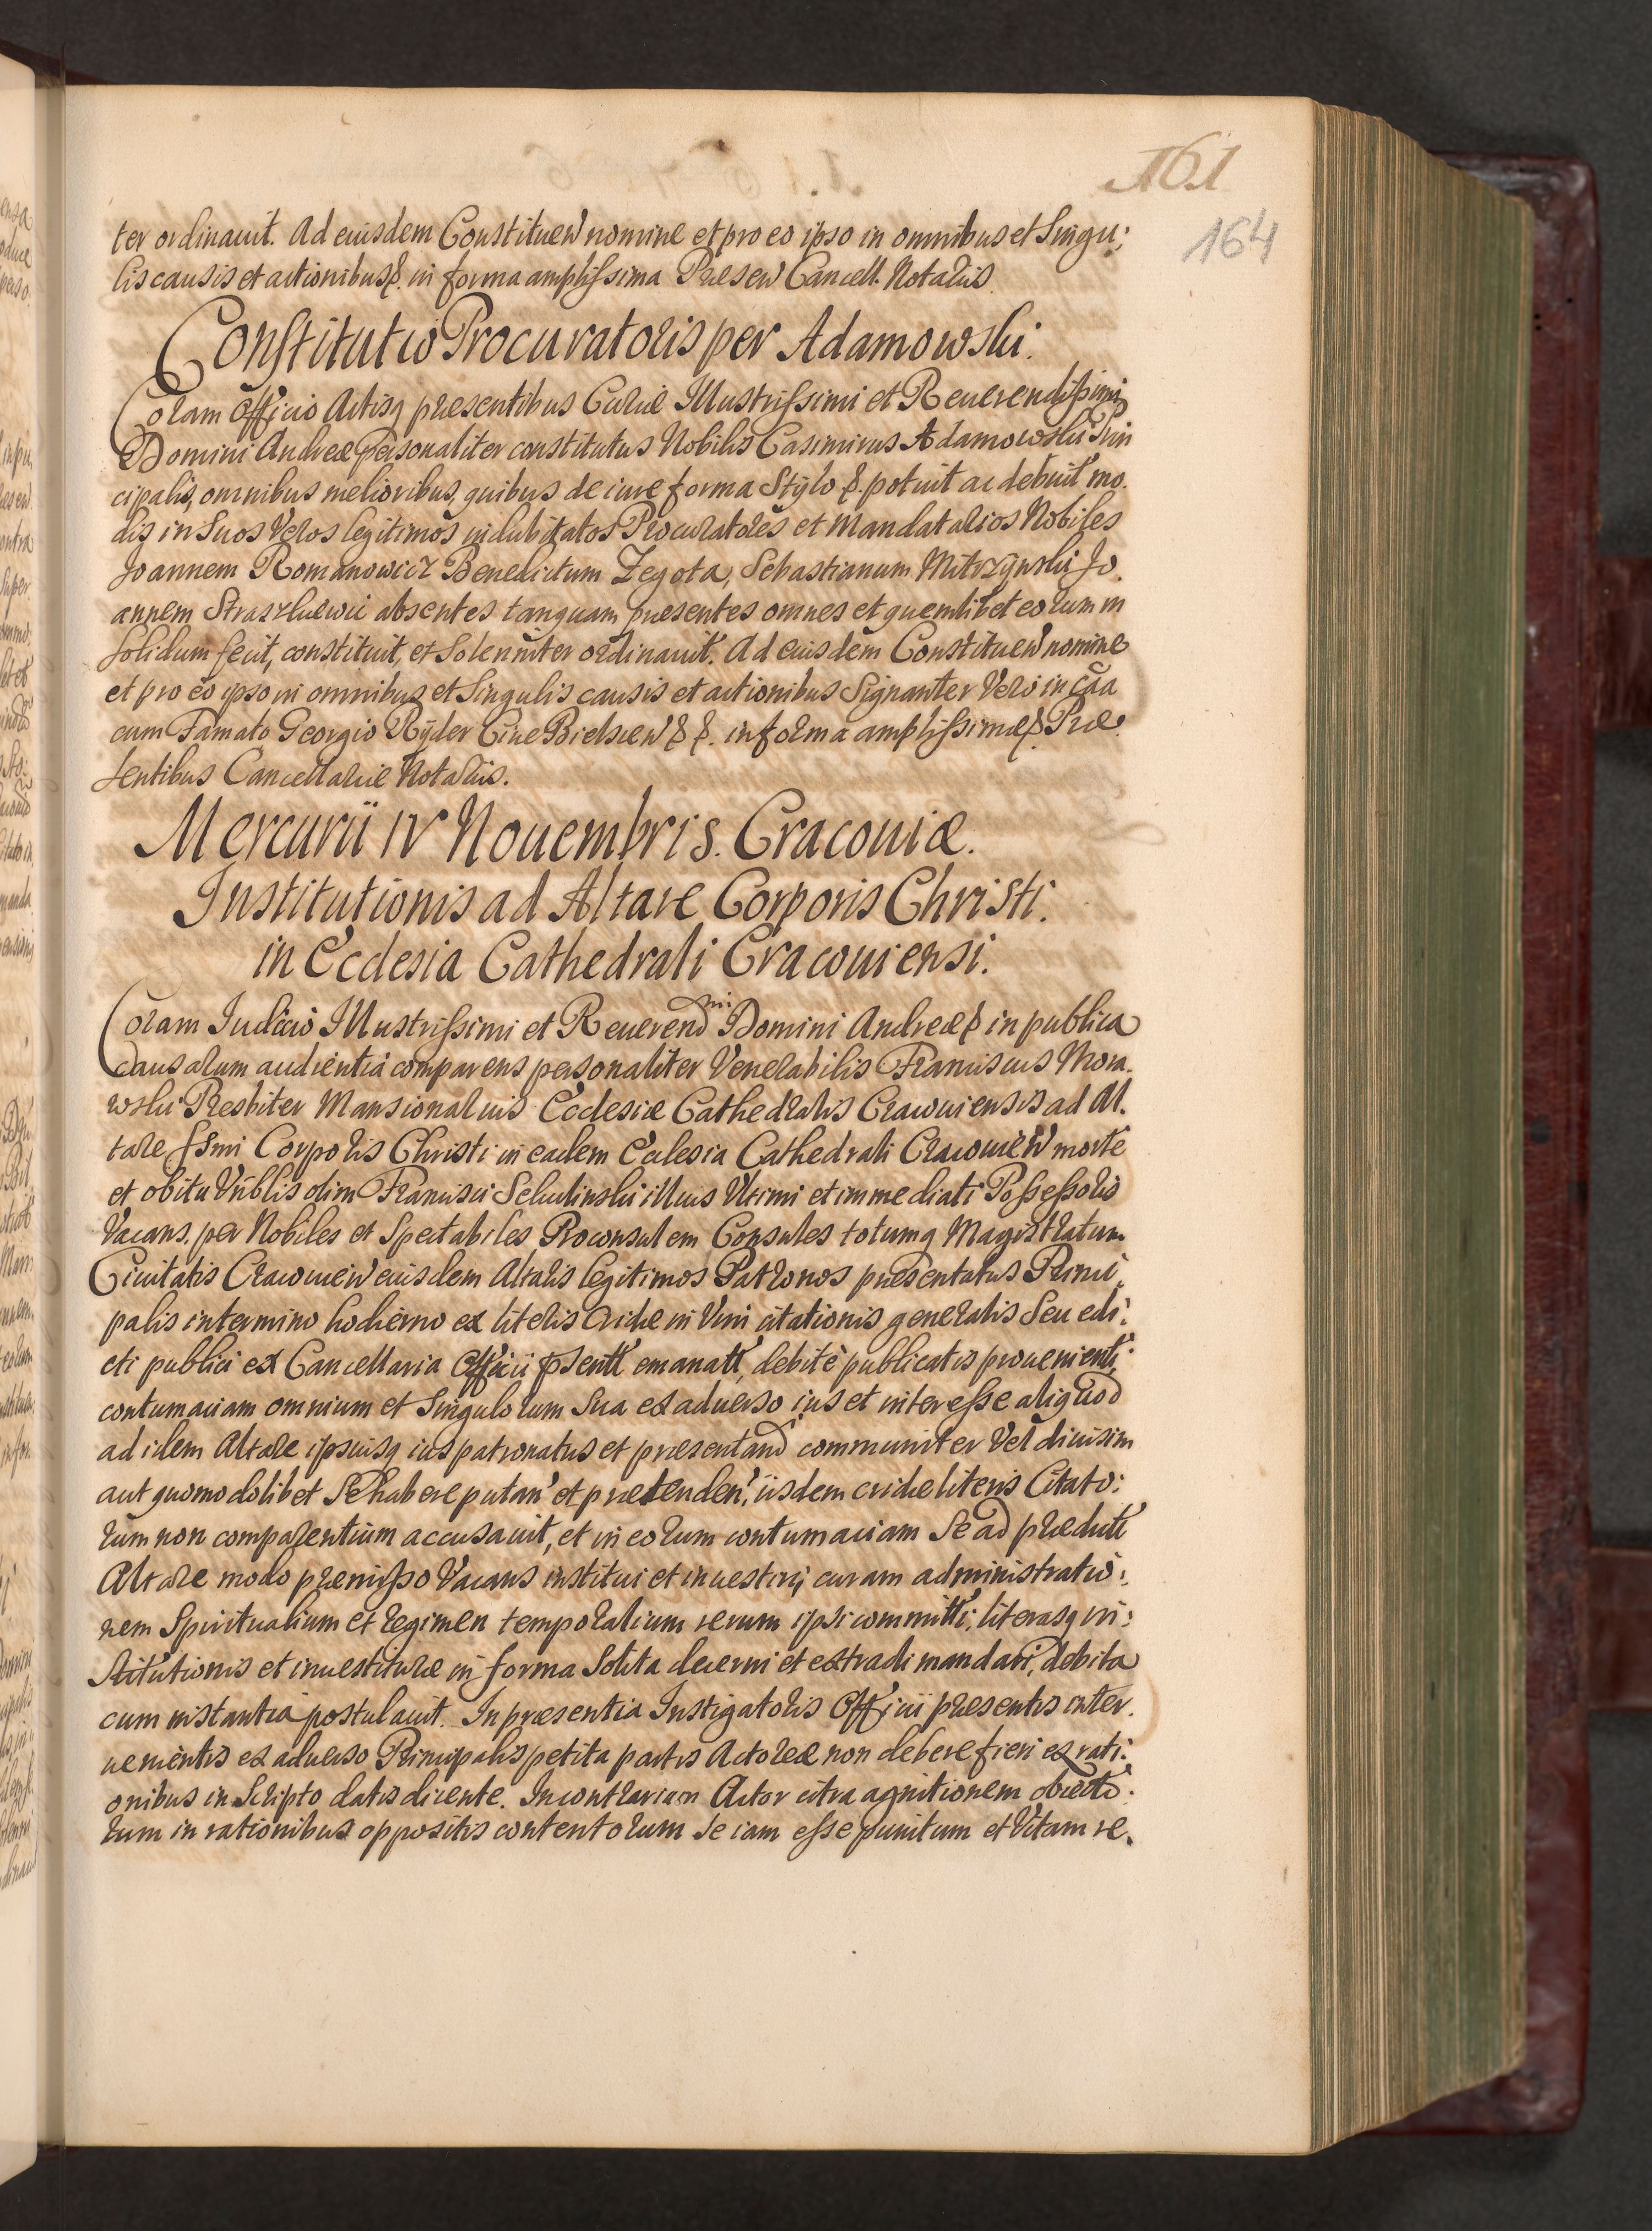 161
164
ter ordinauit. Ad euisdem Constituen nomine et pro eo ipso in omnibus et Singu:
lis causis et actionibus &. in forma amplissima Praesen Cancell. Notariis
Constitutio Procuratoris per Adamowski.
Coram Officio Actisq praesentibus Curiae Illustrissimi et Reuerendissimi
Domini Andreae personaliter constitutus Nobilis Casimirus Adamowski Prin
cipalis, omnibus melioribus, quibus de iure forma Stylo &. potuit ac debuit mo.
dis in Suos Veros legitimos indubitatos Procuratores et Mandatarios Nobiles
Joannem Romanowicz Benedictum Zegota, Sebastianum Mitrzynski Jo.
annem Straszkiewic absentes tanquam praesentes omnes et quemlibet eorum in
Solidum fecit, constituit, et Solenniter ordinauit. Ad euisdem Constituen nomine
et pro eo ipso in omnibus et Singulis causis et actionibus Signanter Vero in cãa
cum Famato Georgio Ryder Ciue Bielscen & &. in forma amplissima &. Prae
sentibus Cancellariae Notariis.
Mercurii IV Nouembris. Cracouiae.
Institutionis ad Altare Corporis Christi.
in Ecclesia Cathedrali Cracouiensi.
Coram Iudicio Illustrissimi et Reuerend mi Domini Andreae & in publica
Causarum audientia comparens personaliter Venerabilis Franciscus Mora.
wski Presbiter Mansionarius Ecclesiae Cathedralis Cracouiensis ad Al.
tare SSmi Corporis Christi in eadem Ecclesia Cathedrali Cracouien morte
et obitu Vñblis olim Francisci illius Vltimi et immediati Possessoris
Vacans. per Nobiles et Spectabiles Proconsulem Consules totumq Magistratum
Ciuitatis Cracouien euisdem Altaris legitimos Patronos praesentatus Princi.
palis in termino hodierno ex literis Cridae in Vim citationis generalis Seu edi:
cti publici ex Cancellaria Officii psentt emanatt, debite publicatis prouenienti,
contumaciam omnium et Singulorum Sua ex aduerso ius et interesse aliquod
ad idem Altare ipsiusq ius patronatus et praesentand communiter Vel diuisim
aut quomodolibet Se habere putan et praetenden, iisdem cridae literis Citato:
rum non comparentium accusauit, et in eorum contumaciam Se ad praedictt
Altare modo praemisso Vacans institui et inuestiri, curam administratio:
nem Spiritualium et regimen temporalium rerum ipsi committi, literasq in:
Stitutionis et inuestiturae in forma Solita decerni et extradi mandari, debita
cum instantia postulauit. In praesentia Instigatoris Officii praesentis inter.
uenientis ex aduerso Principalis petita partis Actoreae non debere fieri ex rati:
onibus in Scripto datis dicente. In contrarium Actor citra agnitionem obiecto.
rum in rationibus oppositis contentorum Se iam esse punitum et Vitam re.